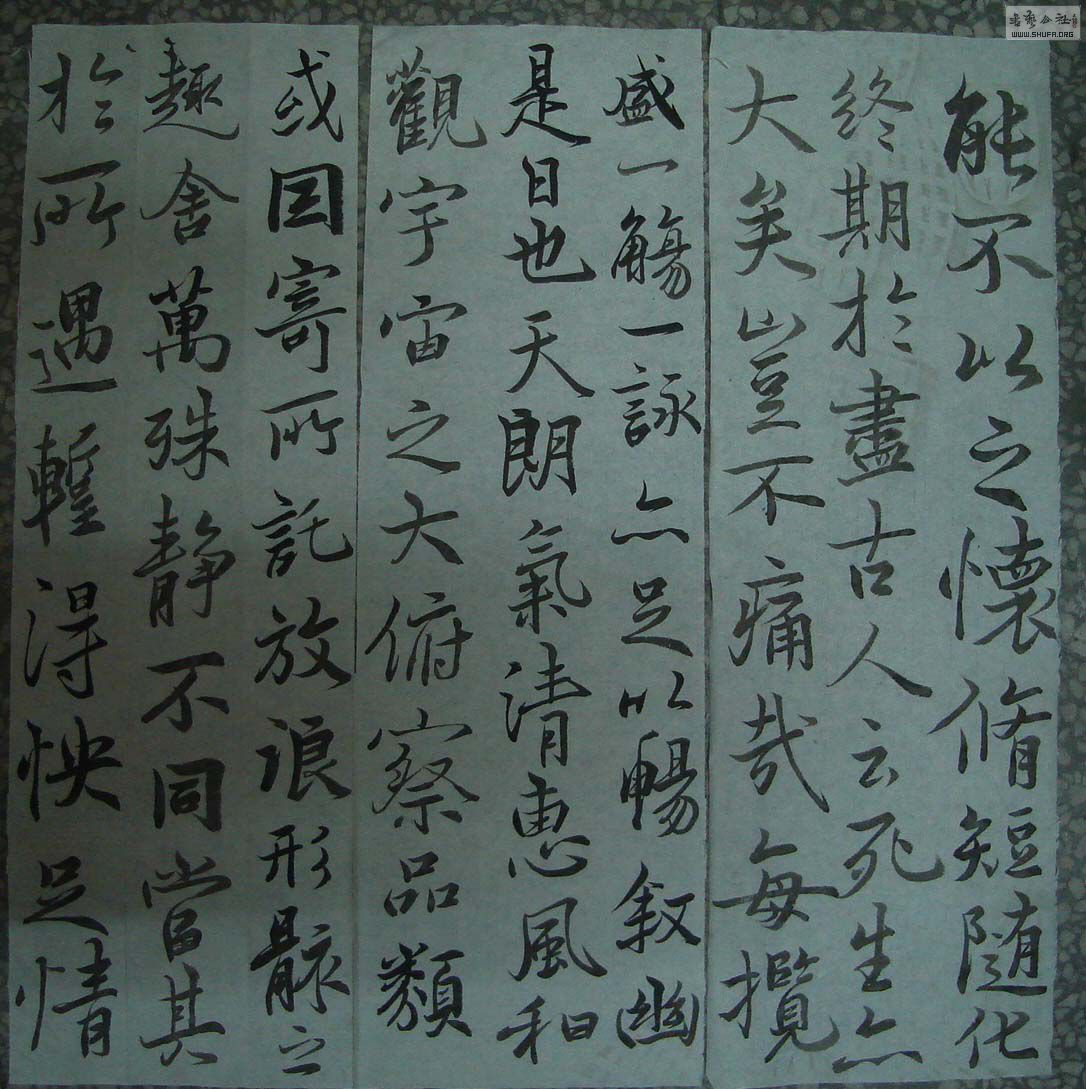 能不以之懷脩短隨化
終期於盡古人云死生亦
大矣豈不痛哉每攬
盛一觴一詠亦足以暢叙幽
是日也天朗氣清惠風和
觀宇宙之大俯察品類
或因寄所託放浪形骸之
趣舍萬殊静不同當其
於所遇蹔得怏足情
書藝公社
WWW.SHUFA.ORG